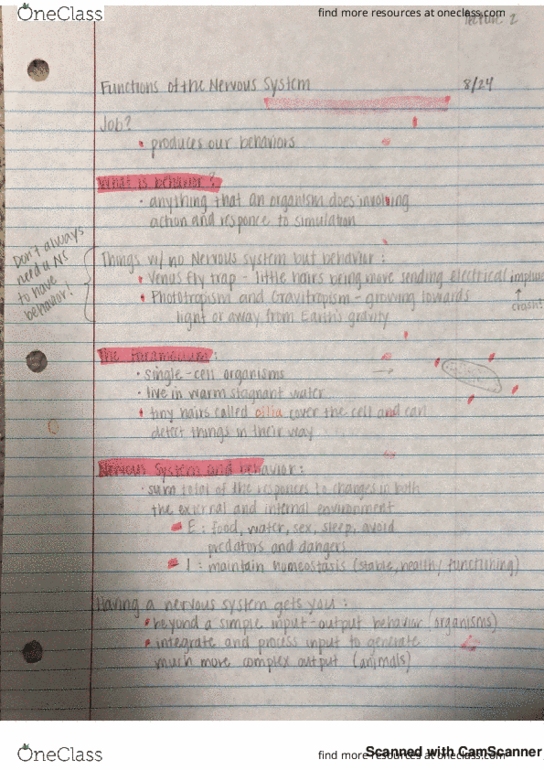 OneClass
find more resources at oneclass.com
lecture 2
Functions of the Nervous System 8/24
Job?
• produces our behaviors
What is behavior?
• anything that an organism does involving
action and responce to simulation
Don't always
need a NS
to have
behavior!
Things w/ no Nervous system but behavior:
• Venus fly trap - little hairs being move sending electrical
• Phototropism and Gravitropism - growing towards
light or away from Earth's gravity
The Paramecium:
• single-cell organisms
• live in warm stagnant water
• tiny hairs called cilia cover the cell and can
detect things in their way
Nervous System and behavior:
• sum total of the responces to changes in both
the external and internal environment
E: food, water, sex, sleep, avoid
predators and dangers
I: maintain homeostasis (stable, healthy functioning)
Having a nervous system gets you:
• beyond a simple input-output behavior (organisms)
• integrate and process input to generate
much more complex output (animals)
OneClass
find more resources at oneclass.com
Scanned with CamScanner